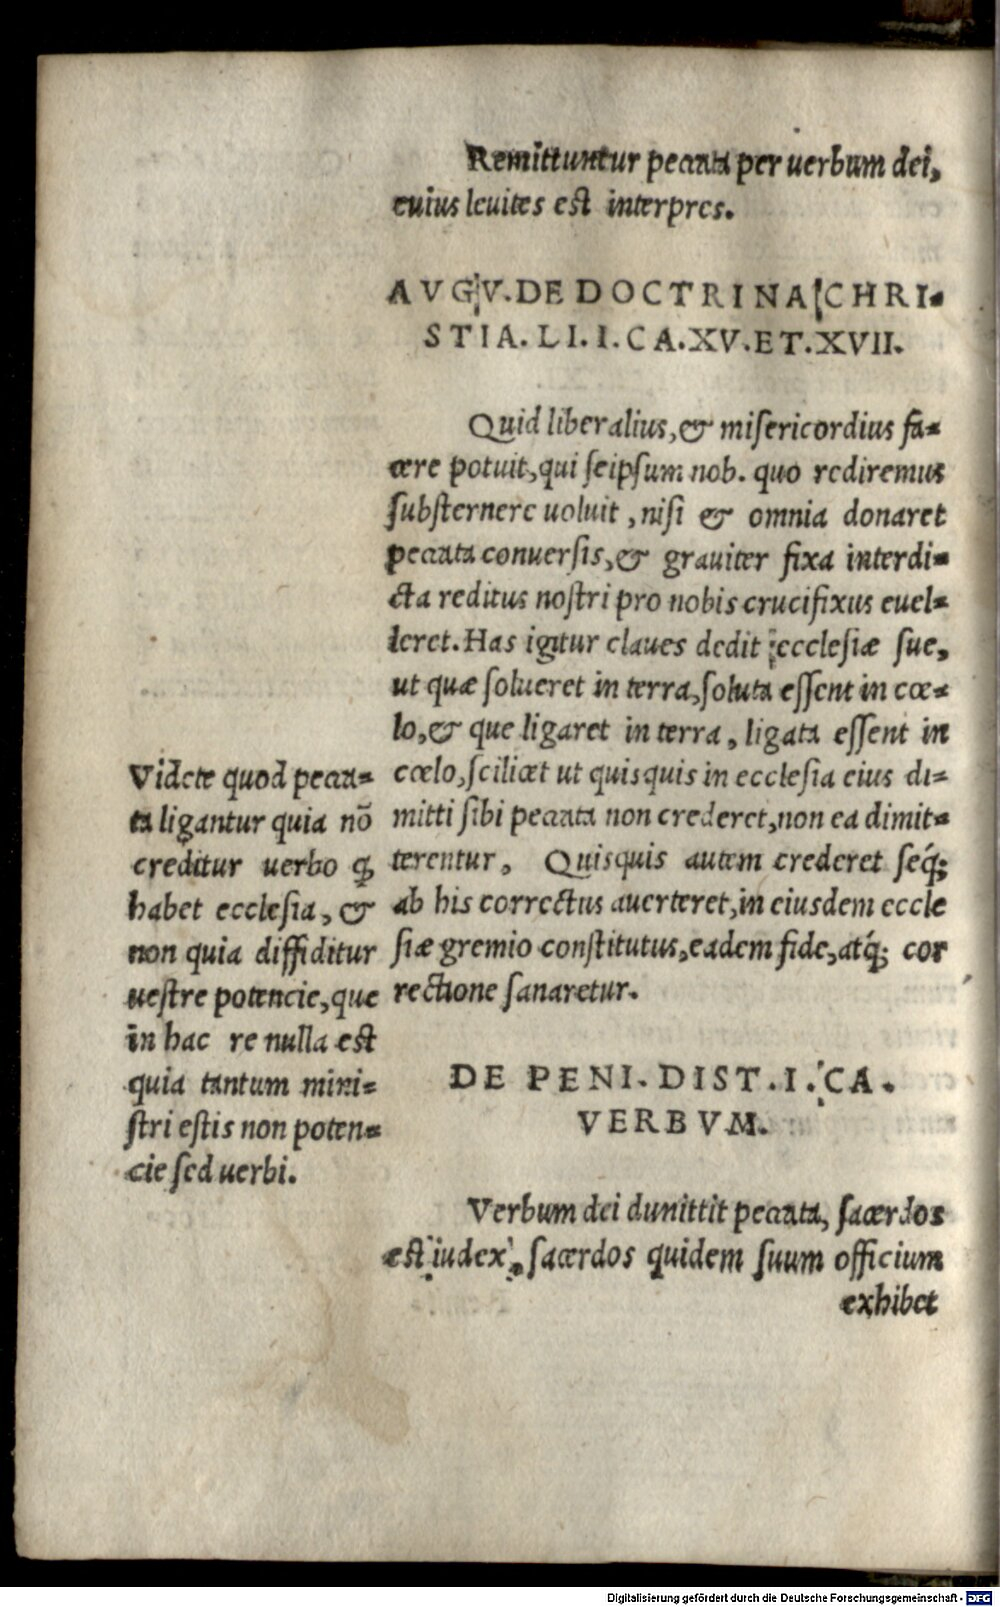 Remittuntur peccata per uerbum dei,
cuius leuites est interpres.
AVGV. DE DOCTRINA CHRI-
STIA. LI. I. CA. XV. ET. XVII.
Quid liberalius, & misericordius fa-
cere potuit, qui seipsum nob. quo rediremus
substernere uoluit, nisi & omnia donaret
peccata conuersis, & grauiter fixa interdi-
cta reditus nostri pro nobis crucifixus euel-
leret. Has igitur claues dedit ecclesiæ sue,
ut quæ solueret in terra, soluta essent in cœ-
lo, & que ligaret in terra, ligata essent in
cœlo, scilicet ut quisquis in ecclesia eius di-
mitti sibi peccata non crederet, non ea dimit-
terentur. Quisquis autem crederet seq́;
ab his correctus auerteret, in eiusdem eccle
siæ gremio constitutus, eadem fide, atq́; cor
rectione sanaretur.
Videte quod pecca-
ta ligantur quia nō
creditur uerbo ꝙ
habet ecclesia, &
non quia diffiditur
uestre potencie, que
in hac re nulla est
quia tantum mini-
stri estis non poten-
cie sed uerbi.
DE PENI. DIST. I. CA.
VERBVM.
Verbum dei dunittit peccata, sacerdos
est iudex, sacerdos quidem suum officium
exhibet
Digitalisierung gefördert durch die Deutsche Forschungsgemeinschaft - DFG